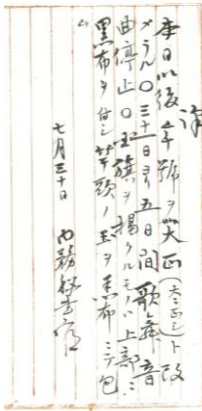 庚日以後年號ヲ大正(大ニ正シ)ト改
メラル〇三十一日ヨリ五日間歌舞音
曲停止〇国旗ヲ揚クルモノハ上部ニ
黒布ヲ付シ竿頭ノ玉ヲ黒布ニテ包
ム
七月三十日
内務